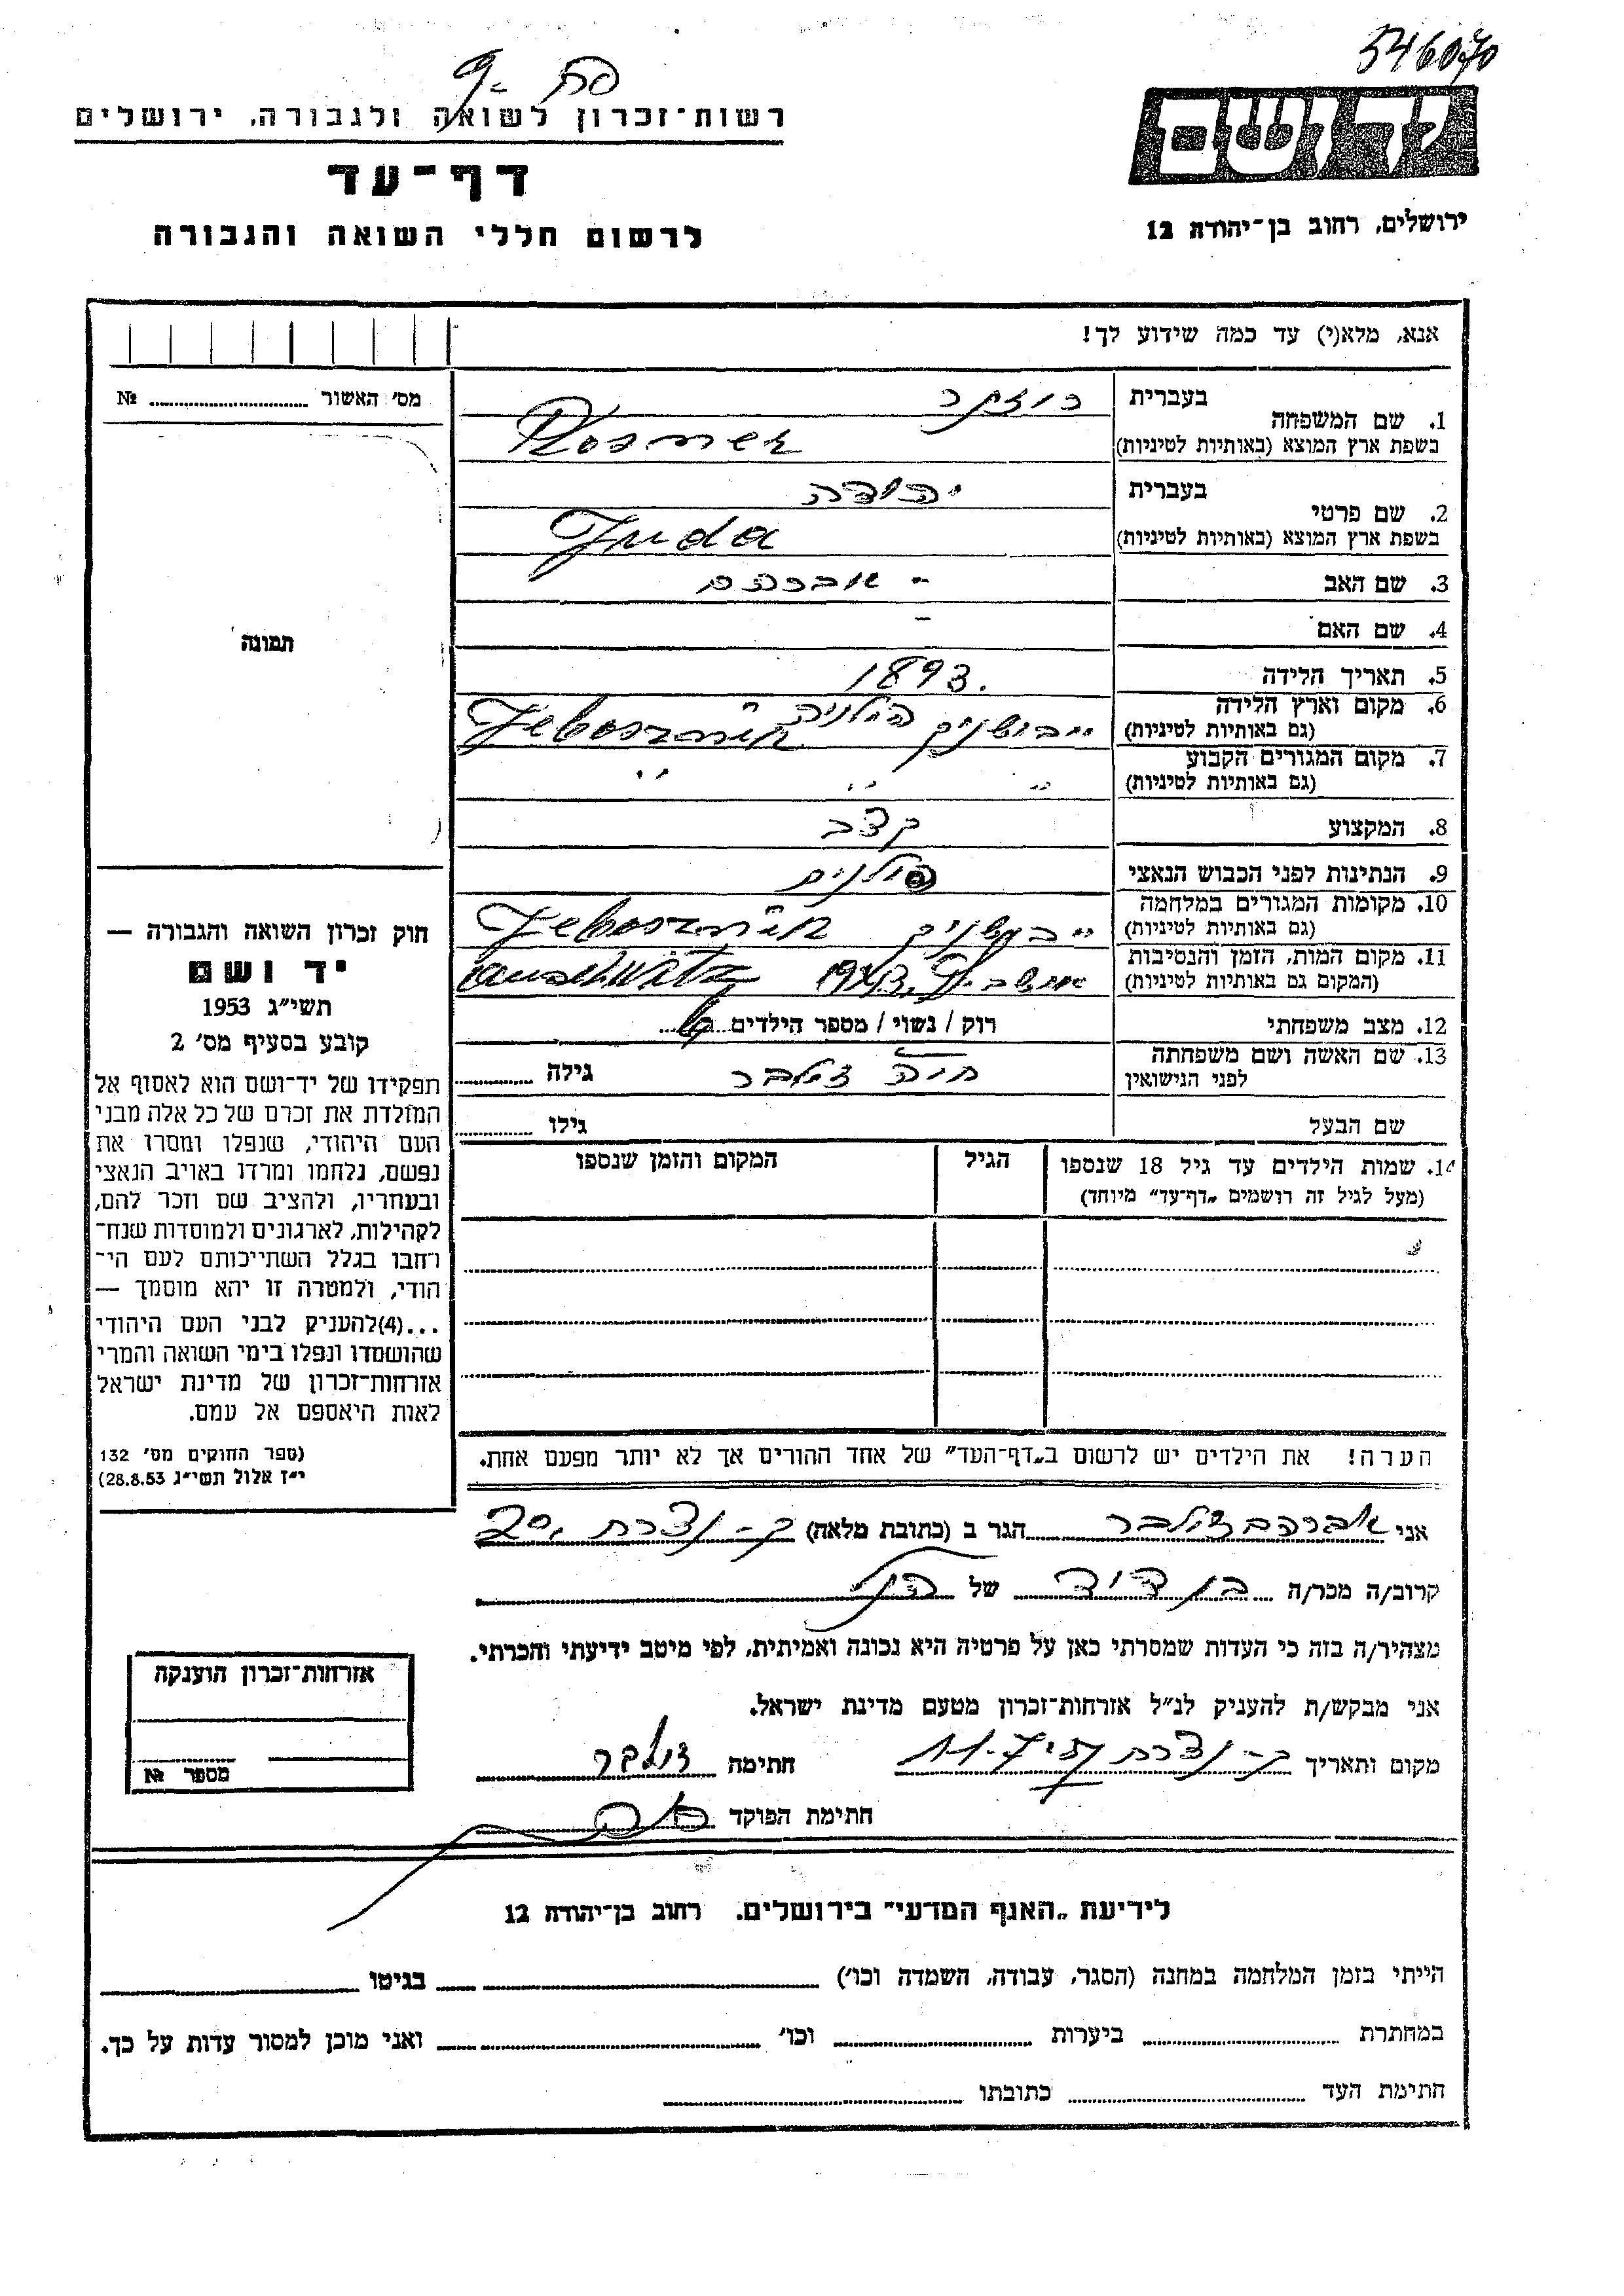 546070
יד ושם
ירושלים, רחוב בן־יהודה 12
רשות־זכרון לשואה ולגבורה, ירושלים
דף־עד
לרשום חללי השואה והגבורה
אנא, מלא(י) עד כמה שידוע לך!
מס׳ האשור № ........
1. שם המשפחה
בעברית
בשפת ארץ המוצא (באותיות לטיניות)
רוזנר
Rosner
2. שם פרטי
בעברית יהודה
בשפת ארץ המוצא (באותיות לטיניות) Juda
3. שם האב - אברהם
4. שם האם -
5. תאריך הלידה 1893.
6. מקום וארץ הלידה
(גם באותיות לטיניות)
פולניה
7. מקום המגורים הקבוע
(גם באותיות לטיניות) " " "
8. המקצוע קצב
9. הנתינות לפני הכבוש הנאצי פולנית
10. מקומות המגורים במלחמה
(גם באותיות לטיניות)
11. מקום המות, הזמן והנסיבות
(המקום גם באותיות לטיניות) 1943 Auschwitz
12. מצב משפחתי רוק / נשוי / מספר הילדים
13. שם האשה ושם משפחתה
לפני הנישואין חיה זילבר גילה ........
שם הבעל גילו ........
14. שמות הילדים עד גיל 18 שנספו
(מעל לגיל זה רושמים „דף־עד" מיוחד)
הגיל
המקום והזמן שנספו
תמונה
חוק זכרון השואה והגבורה —
יד ושם
תשי״ג 1953
קובע בסעיף מס׳ 2
תפקידו של יד־ושם הוא לאסוף אל
המולדת את זכרם של כל אלה מבני
העם היהודי, שנפלו ומסרו את
נפשם, נלחמו ומרדו באויב הנאצי
ובעוזריו, ולהציב שם וזכר להם,
לקהילות, לארגונים ולמוסדות שנח־
רחבו בגלל השתייכותם לעם הי־
הודי, ולמטרה זו יהא מוסמך —
...(4)להעניק לבני העם היהודי
שהושמדו ונפלו בימי השואה והמרי
אזרחות־זכרון של מדינת ישראל
לאות היאספם אל עמם.
(ספר החוקים מס׳ 132
י״ז אלול תשי״ג 28.8.53)
הערה! את הילדים יש לרשום ב„דף־העד" של אחד ההורים אך לא יותר מפעם אחת.
אני אברהם זילבר הגר ב (כתובת מלאה) ק- נצרת
קרוב/ה מכר/ה בן דוד של הנ״ל
מצהיר/ה בזה כי העדות שמסרתי כאן על פרטיה היא נכונה ואמיתית, לפי מיטב ידיעתי והכרתי.
אני מבקש/ת להעניק לנ״ל אזרחות־זכרון מטעם מדינת ישראל.
מקום ותאריך ק- נצרת חתימה זילבר
חתימת הפוקד
אזרחות־זכרון הוענקה
מספר №
לידיעת „האגף המדעי" בירושלים. רחוב בן־יהודה 12
הייתי בזמן המלחמה במחנה (הסגר, עבודה, השמדה וכו׳) ........ בגיטו ........
במחתרת ........ ביערות ........ וכו׳ ........ ואני מוכן למסור עדות על כך.
חתימת העד ........ כתובתו ........